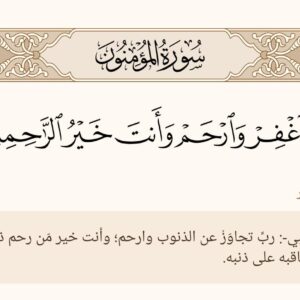 سُورَةُ المُؤْمِنُونَ
ٱغْفِرْ وَٱرْحَمْ وَأَنتَ خَيْرُ ٱلرَّٰحِمِ
ربِّ تجاوَزْ عن الذنوب وارحم؛ وأنت خير مَن رحم
على ذنبه.